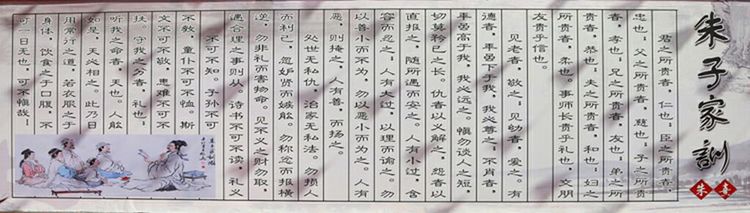 朱子家訓
朱熹
君之所贵者，仁也；臣之所贵者，
忠也；父之所贵者，慈也；子之所贵
者，孝也；兄之所贵者，友也；弟之所
贵者，恭也；夫之所贵者，和也；妇之
所贵者，柔也。事师长贵乎礼也，交朋
友贵乎信也。
见老者，敬之；见幼者，爱之。有
德者，年虽下于我，我必尊之；不肖者，
年虽高于我，我必远之。慎勿谈人之短，
切莫矜己之长。仇者以义解之，怨者以
直报之，随所遇而安之。人有小过，含
容而忍之；人有大过，以理而谕之。勿
以善小而不为，勿以恶小而为之。人有
恶，则掩之；人有善，则扬之。
处世无私仇，治家无私法。勿损人
而利己，勿妒贤而嫉能。勿称忿而报横
逆，勿非礼而害物命。见不义之财勿取，
遇合理之事则从。诗书不可不读，礼义
不可不知。子孙不可
不教，童仆不可不恤。斯
文不可不敬，患难不可不
扶。守我之分者，礼也；
听我之命者，天也。人能
如是，天必相之。此乃日
用常行之道，若衣服之于
身体，饮食之于口腹，不
可一日无也，可不慎哉！